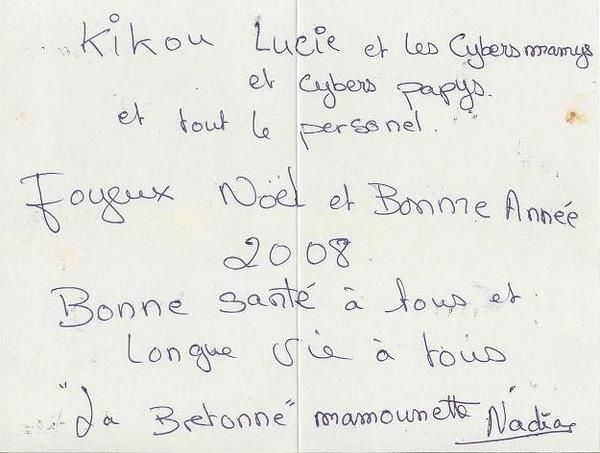 Kikou Lucie et les Cybersmamys
et Cybers papys.
et tout le personel.
Joyeux Noël et Bonne Année
2008
Bonne santé à tous et
Longue vie à tous
"La Bretonne" mamounette Nadia